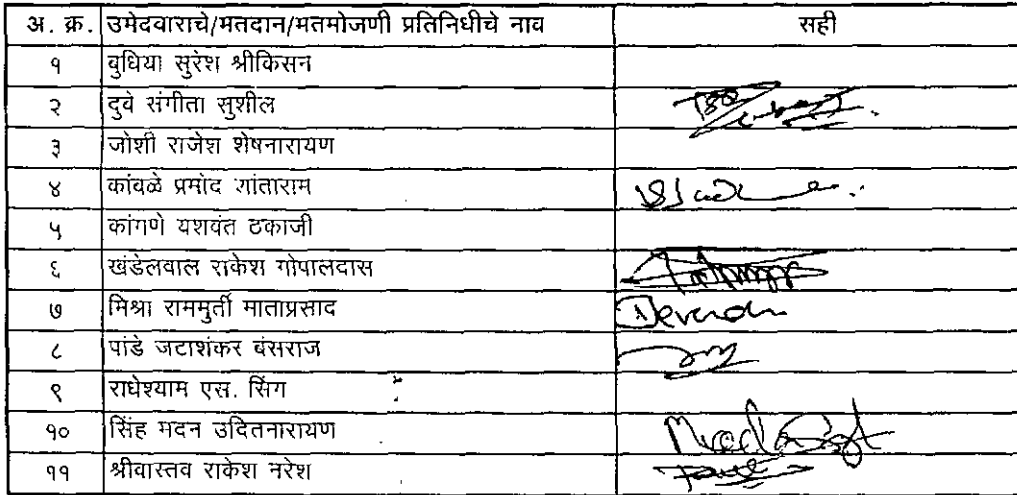 अ. क्र. उमेदवाराचे/मतदान/मतमोजणी प्रतिनिधीचे नाव सही
१ बुधिया सुरेश श्रीकिसन
२ दुबे संगीता सुशील
३ जोशी राजेश शेषनारायण
४ कांबळे प्रमोद शांताराम
५ कांगणे यशवंत टकाजी
६ खंडेलवाल राकेश गोपालदास
७ मिश्रा राममुर्ती माताप्रसाद
८ पांडे जटाशंकर बंसराज
९ राधेश्याम एस. सिंग
१० सिंह मदन उदितनारायण
११ श्रीवास्तव राकेश नरेश